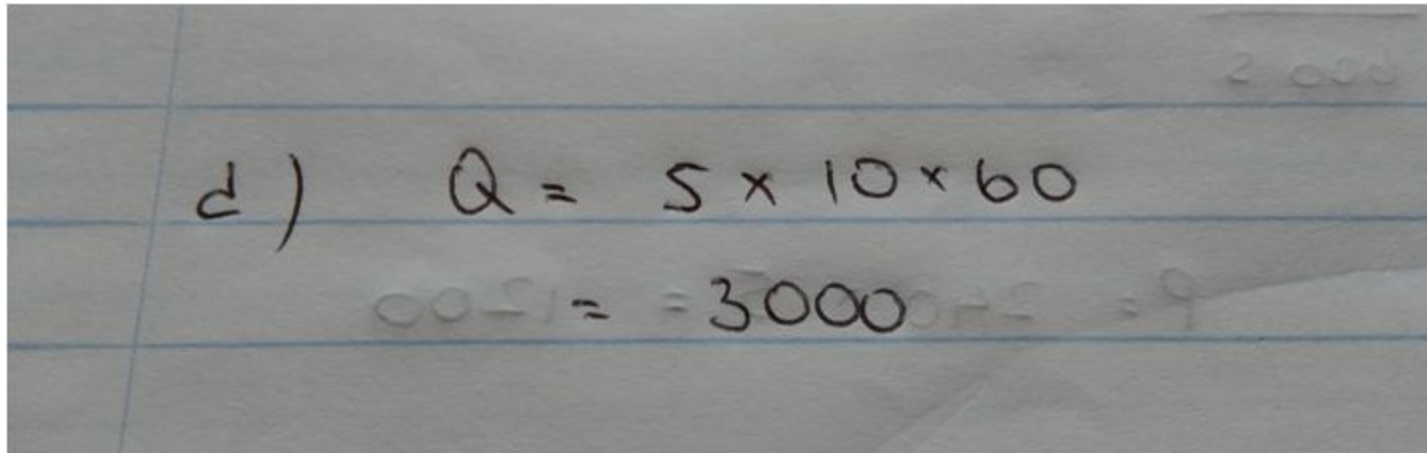 d) Q = 5 × 10 × 60
= 3000